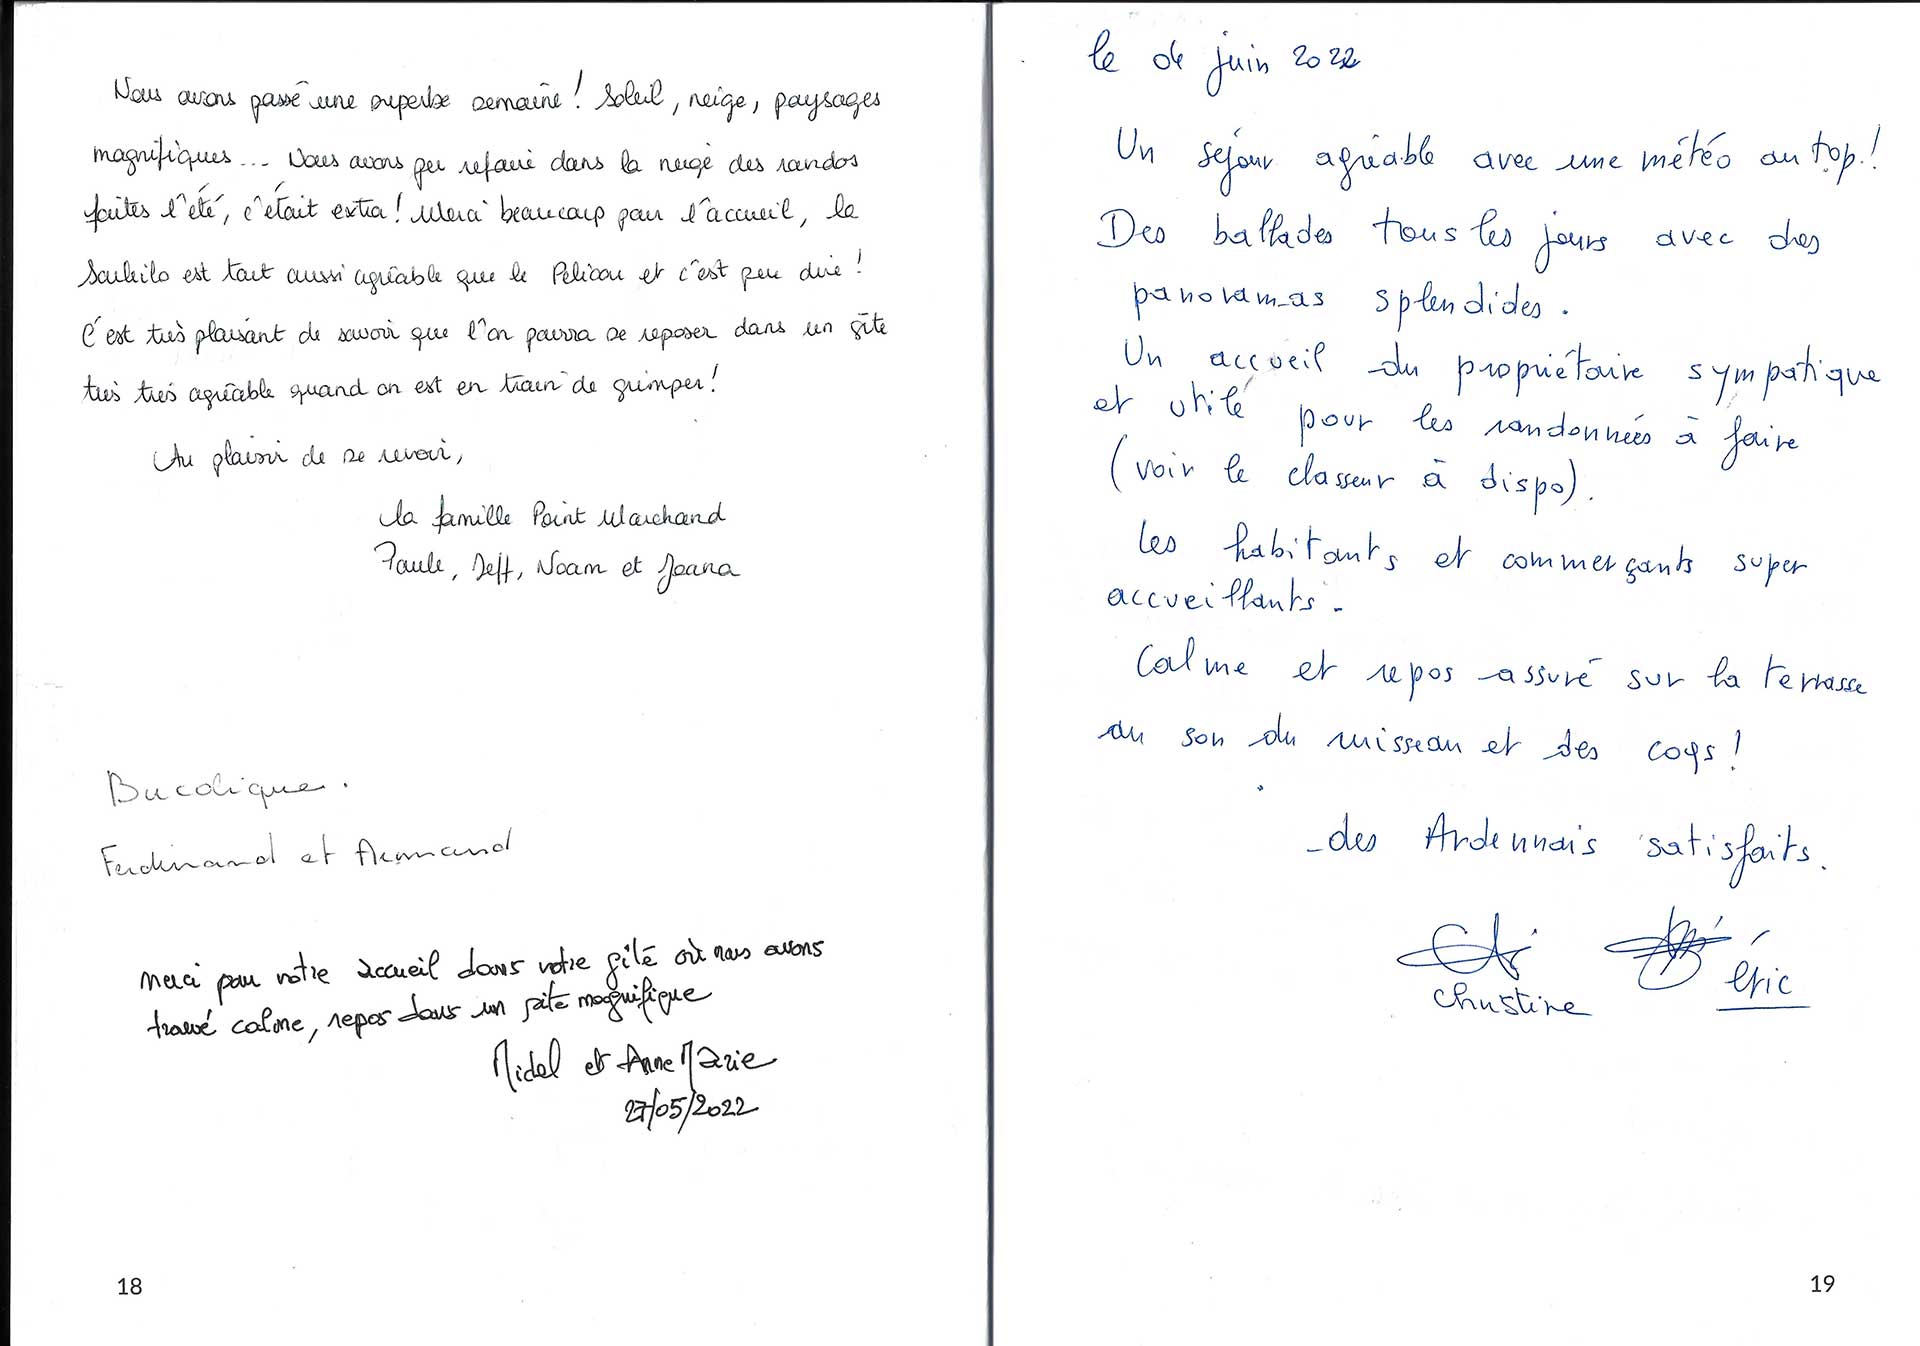 Nous avons passé une superbe semaine ! Soleil, neige, paysages
magnifiques... Nous avons pu refaire dans la neige des randos
faites l'été, c'était extra ! Merci beaucoup pour l'accueil, le
Souleilo est tout aussi agréable que le Pelicou et c'est peu dire !
C'est très plaisant de savoir que l'on pourra se reposer dans un gîte
très très agréable quand on est en train de grimper !
Au plaisir de se revoir,
La famille Point Marchand
Paule, Jeff, Noam et Joana
Bucolique.
Ferdinand et Armand
Merci pour votre accueil dans votre gîte où nous avons
trouvé calme, repos dans un site magnifique
Michel et Anne Marie
27/05/2022
18
le 04 juin 2022
Un séjour agréable avec une météo au top !
Des ballades tous les jours avec des
panoramas splendides.
Un accueil du propriétaire sympatique
et utile pour les randonnées à faire
(voir le classeur à dispo).
Les habitants et commerçants super
accueillants.
Calme et repos assuré sur la terrasse
au son du ruisseau et des coqs !
des Ardennais satisfaits.
Christine
Eric
19